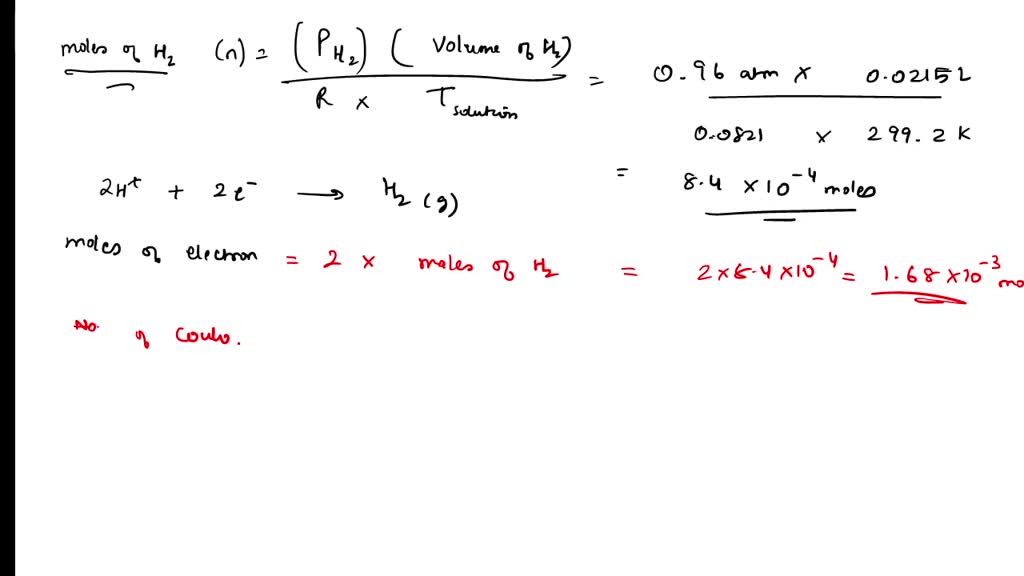 moles of H₂ (n) = (P_H₂) ( Volume of H₂) / R x T_solution = 0.96 atm x 0.0215L / 0.0821 x 299.2 K
= 8.4 x 10⁻⁴ moles
2H⁺ + 2e⁻ → H₂ (g)
moles of electron = 2 x moles of H₂ = 2 x 8.4 x 10⁻⁴ = 1.68 x 10⁻³ mo
No. of Coulo.